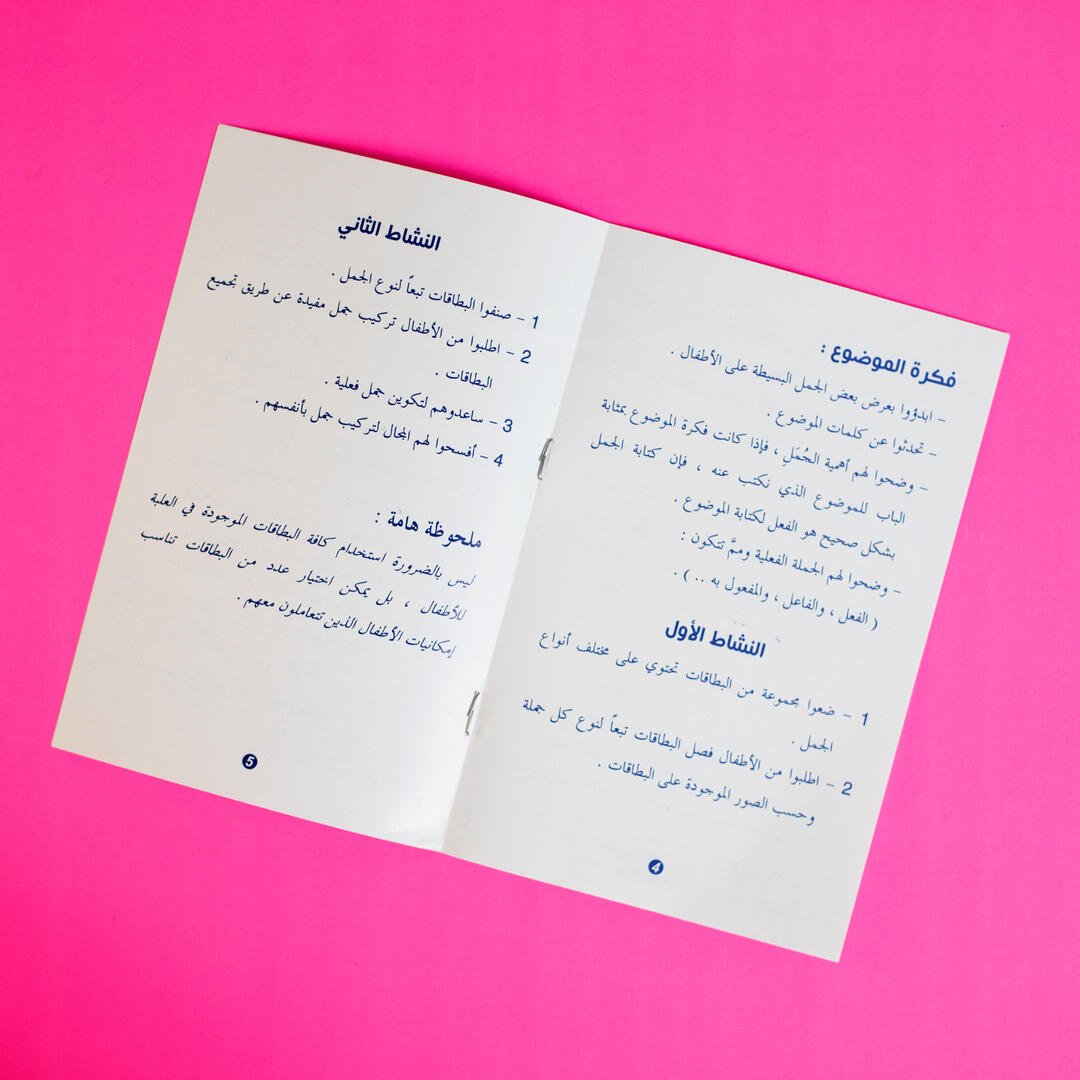 فكرة الموضوع :
– ابدؤوا بعرض بعض الجمل البسيطة على الأطفال .
– تحدثوا عن كلمات الموضوع .
– وضحوا لهم أهمية الجُمَلِ ، فإذا كانت فكرة الموضوع بمثابة
الباب للموضوع الذي نكتب عنه ، فإن كتابة الجمل
بشكل صحيح هو الفعل لكتابة الموضوع .
– وضحوا لهم الجملة الفعلية وممَّ تتكون :
( الفعل ، والفاعل ، والمفعول به ... ) .
النشاط الأول
1 – ضعوا مجموعة من البطاقات تحتوي على مختلف أنواع
الجمل .
2 – اطلبوا من الأطفال فصل البطاقات تبعاً لنوع كل جملة
وحسب الصور الموجودة على البطاقات .
4
النشاط الثاني
1 – صنفوا البطاقات تبعاً لنوع الجمل .
2 – اطلبوا من الأطفال تركيب جمل مفيدة عن طريق تجميع
البطاقات .
3 – ساعدوهم لتكوين جمل فعلية .
4 – أفسحوا لهم المجال لتركيب جمل بأنفسهم .
ملحوظة هامة :
ليس بالضرورة استخدام كافة البطاقات الموجودة في العلبة
للأطفال ، بل يمكن اختيار عدد من البطاقات تناسب
إمكانيات الأطفال الذين تتعاملون معهم .
5